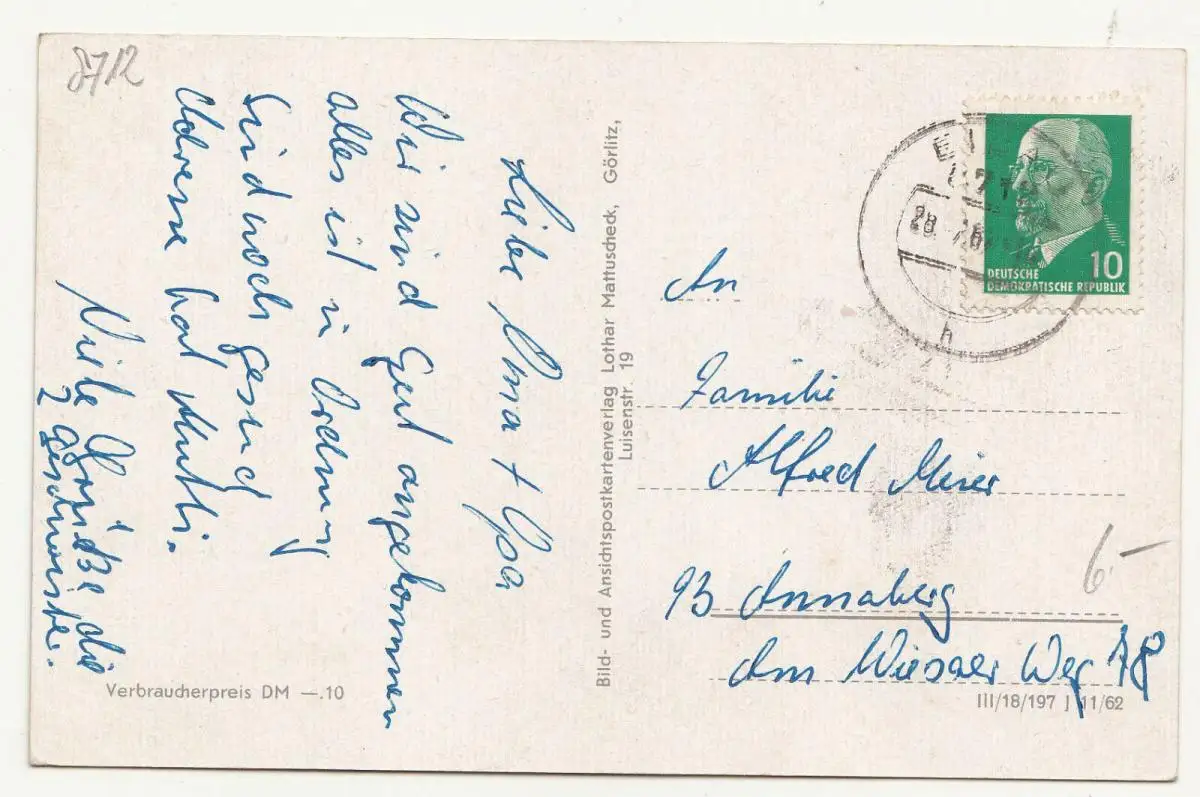 8712
Liebe Oma + Opa
Wir sind Gut angekommen
alles ist in Ordnung
Sind noch gesund
Adresse hat Mutti.
Viele Grüße die
2 geschwister.
Verbraucherpreis DM —.10
Bild- und Ansichtspostkartenverlag Lothar Mattuscheck, Görlitz,
Luisenstr. 19
28
h
10
DEUTSCHE
DEMOKRATISCHE REPUBLIK
An
Familie
Alfred Meier
93 Annaberg
Am Wiesaer Weg 18
6.—
III/18/197 J 11/62